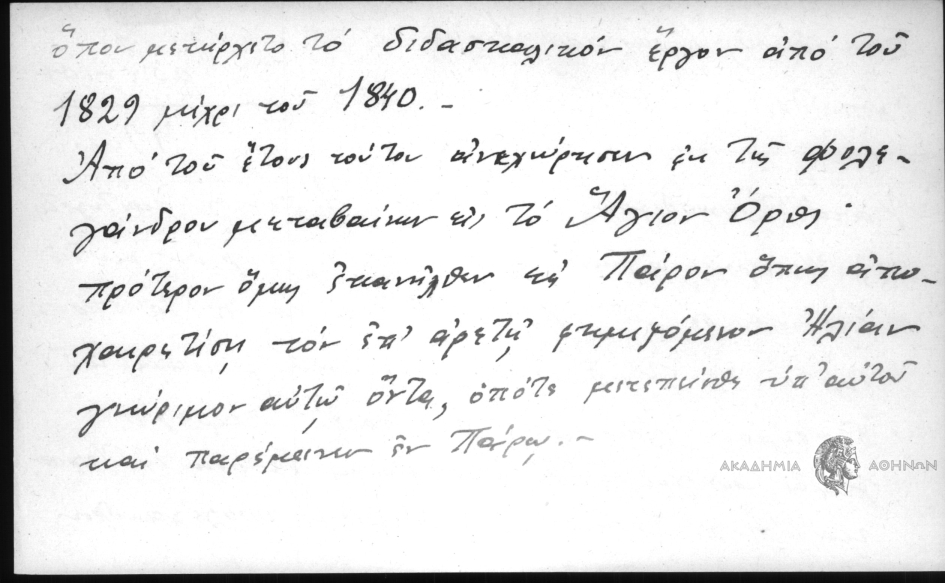 ὅπου μετήρχετο τό διδασκαλικόν ἔργον ἀπό τοῦ
1829 μέχρι τοῦ 1840. –
Ἀπό τοῦ ἔτους τούτου ἀνεχώρησεν ἐκ τῆς Φολε-
γάνδρου μεταβαίνων εἰς τό Ἅγιον Ὄρος·
πρότερον ὅμως ἐπανῆλθεν εἰς Πάρον ὅπως ἀπο-
χαιρετίσῃ τόν ἐπ' ἀρετῇ φημιζόμενον Ἠλίαν
γνώριμον αὐτῷ ὄντα, ὁπότε μετεπείσθη ὑπ' αὐτοῦ
καί παρέμεινεν ἐν Πάρῳ. –
ΑΚΑΔΗΜΙΑ ΑΘΗΝΩΝ